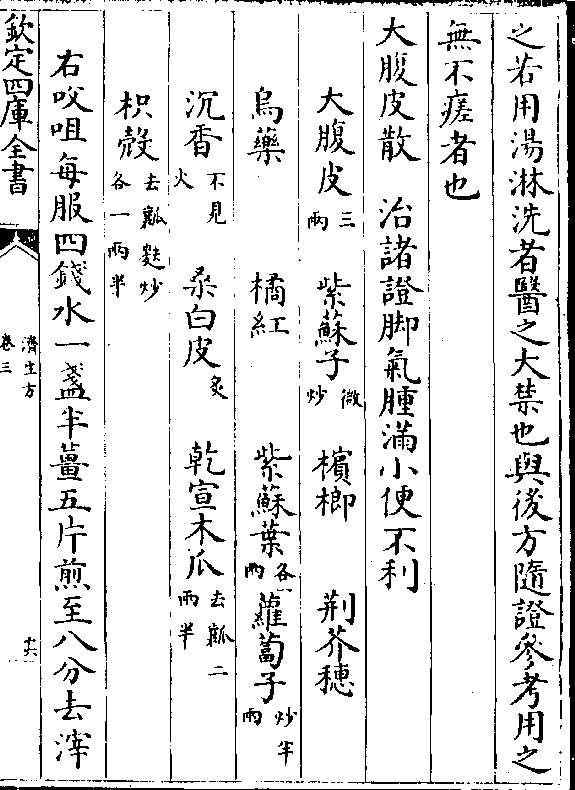 之若用湯淋洗者醫之大禁也與後方隨證參考用之
無不瘥者也
大腹皮散　治諸證脚氣腫滿小便不利
大腹皮三兩　紫蘇子微炒　檳榔　荆芥穗
烏藥　橘紅　紫蘇葉各一兩　蘿蔔子炒半兩
沉香不見火　桑白皮炙　乾宣木瓜去瓤二兩半
枳殼去瓤麩炒各一兩半
右㕮咀每服四錢水一盞半薑五片煎至八分去滓
欽定四庫全書
濟生方
卷三